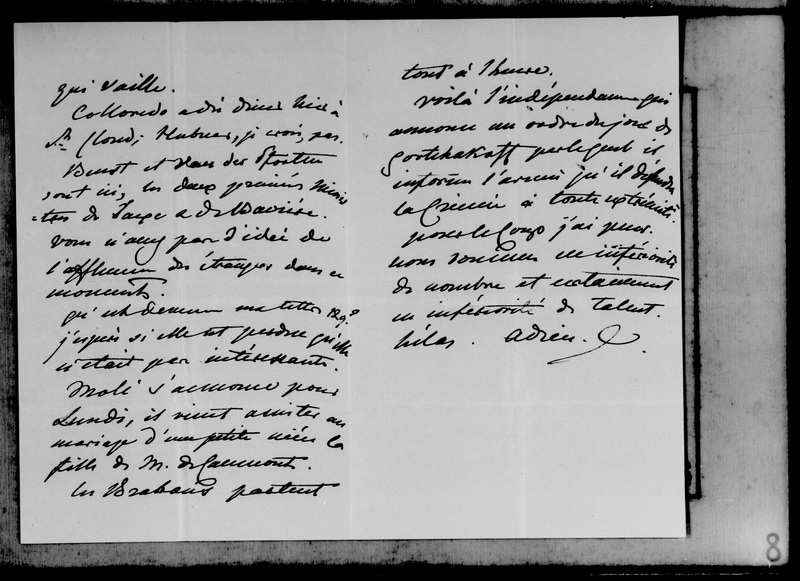 qui vaille.
Colloredo a dû diner hier à
St Cloud; Hubner, je crois, pas.
Beust et Van der Pfortten
sont ici, les deux premiers Minis
-tres de Saxe & de Bavière.
Vous n'avez pas d'idée de
l'affluence des étrangers dans ce
moment.
qu'est devenu ma lettre 129?
j'espère si elle est perdue qu'elle
n'était pas intéressante.
Molé s'annonce pour
Lundi, il vient assister au
mariage d'une petite nièce la
fille de M. de Caumont.
les Brabant partent
tout à l'heure.
voilà l'indépendance qui
annonce un ordre du jour de
Gortchakoff par lequel il
informe l'armée qu'il défendra
la Crimée à toute extrémité.
pour le coup j'ai peur.
nous sommes en infériorité
de nombre et certainement
en infériorité de talent.
hélas. adieu.
8